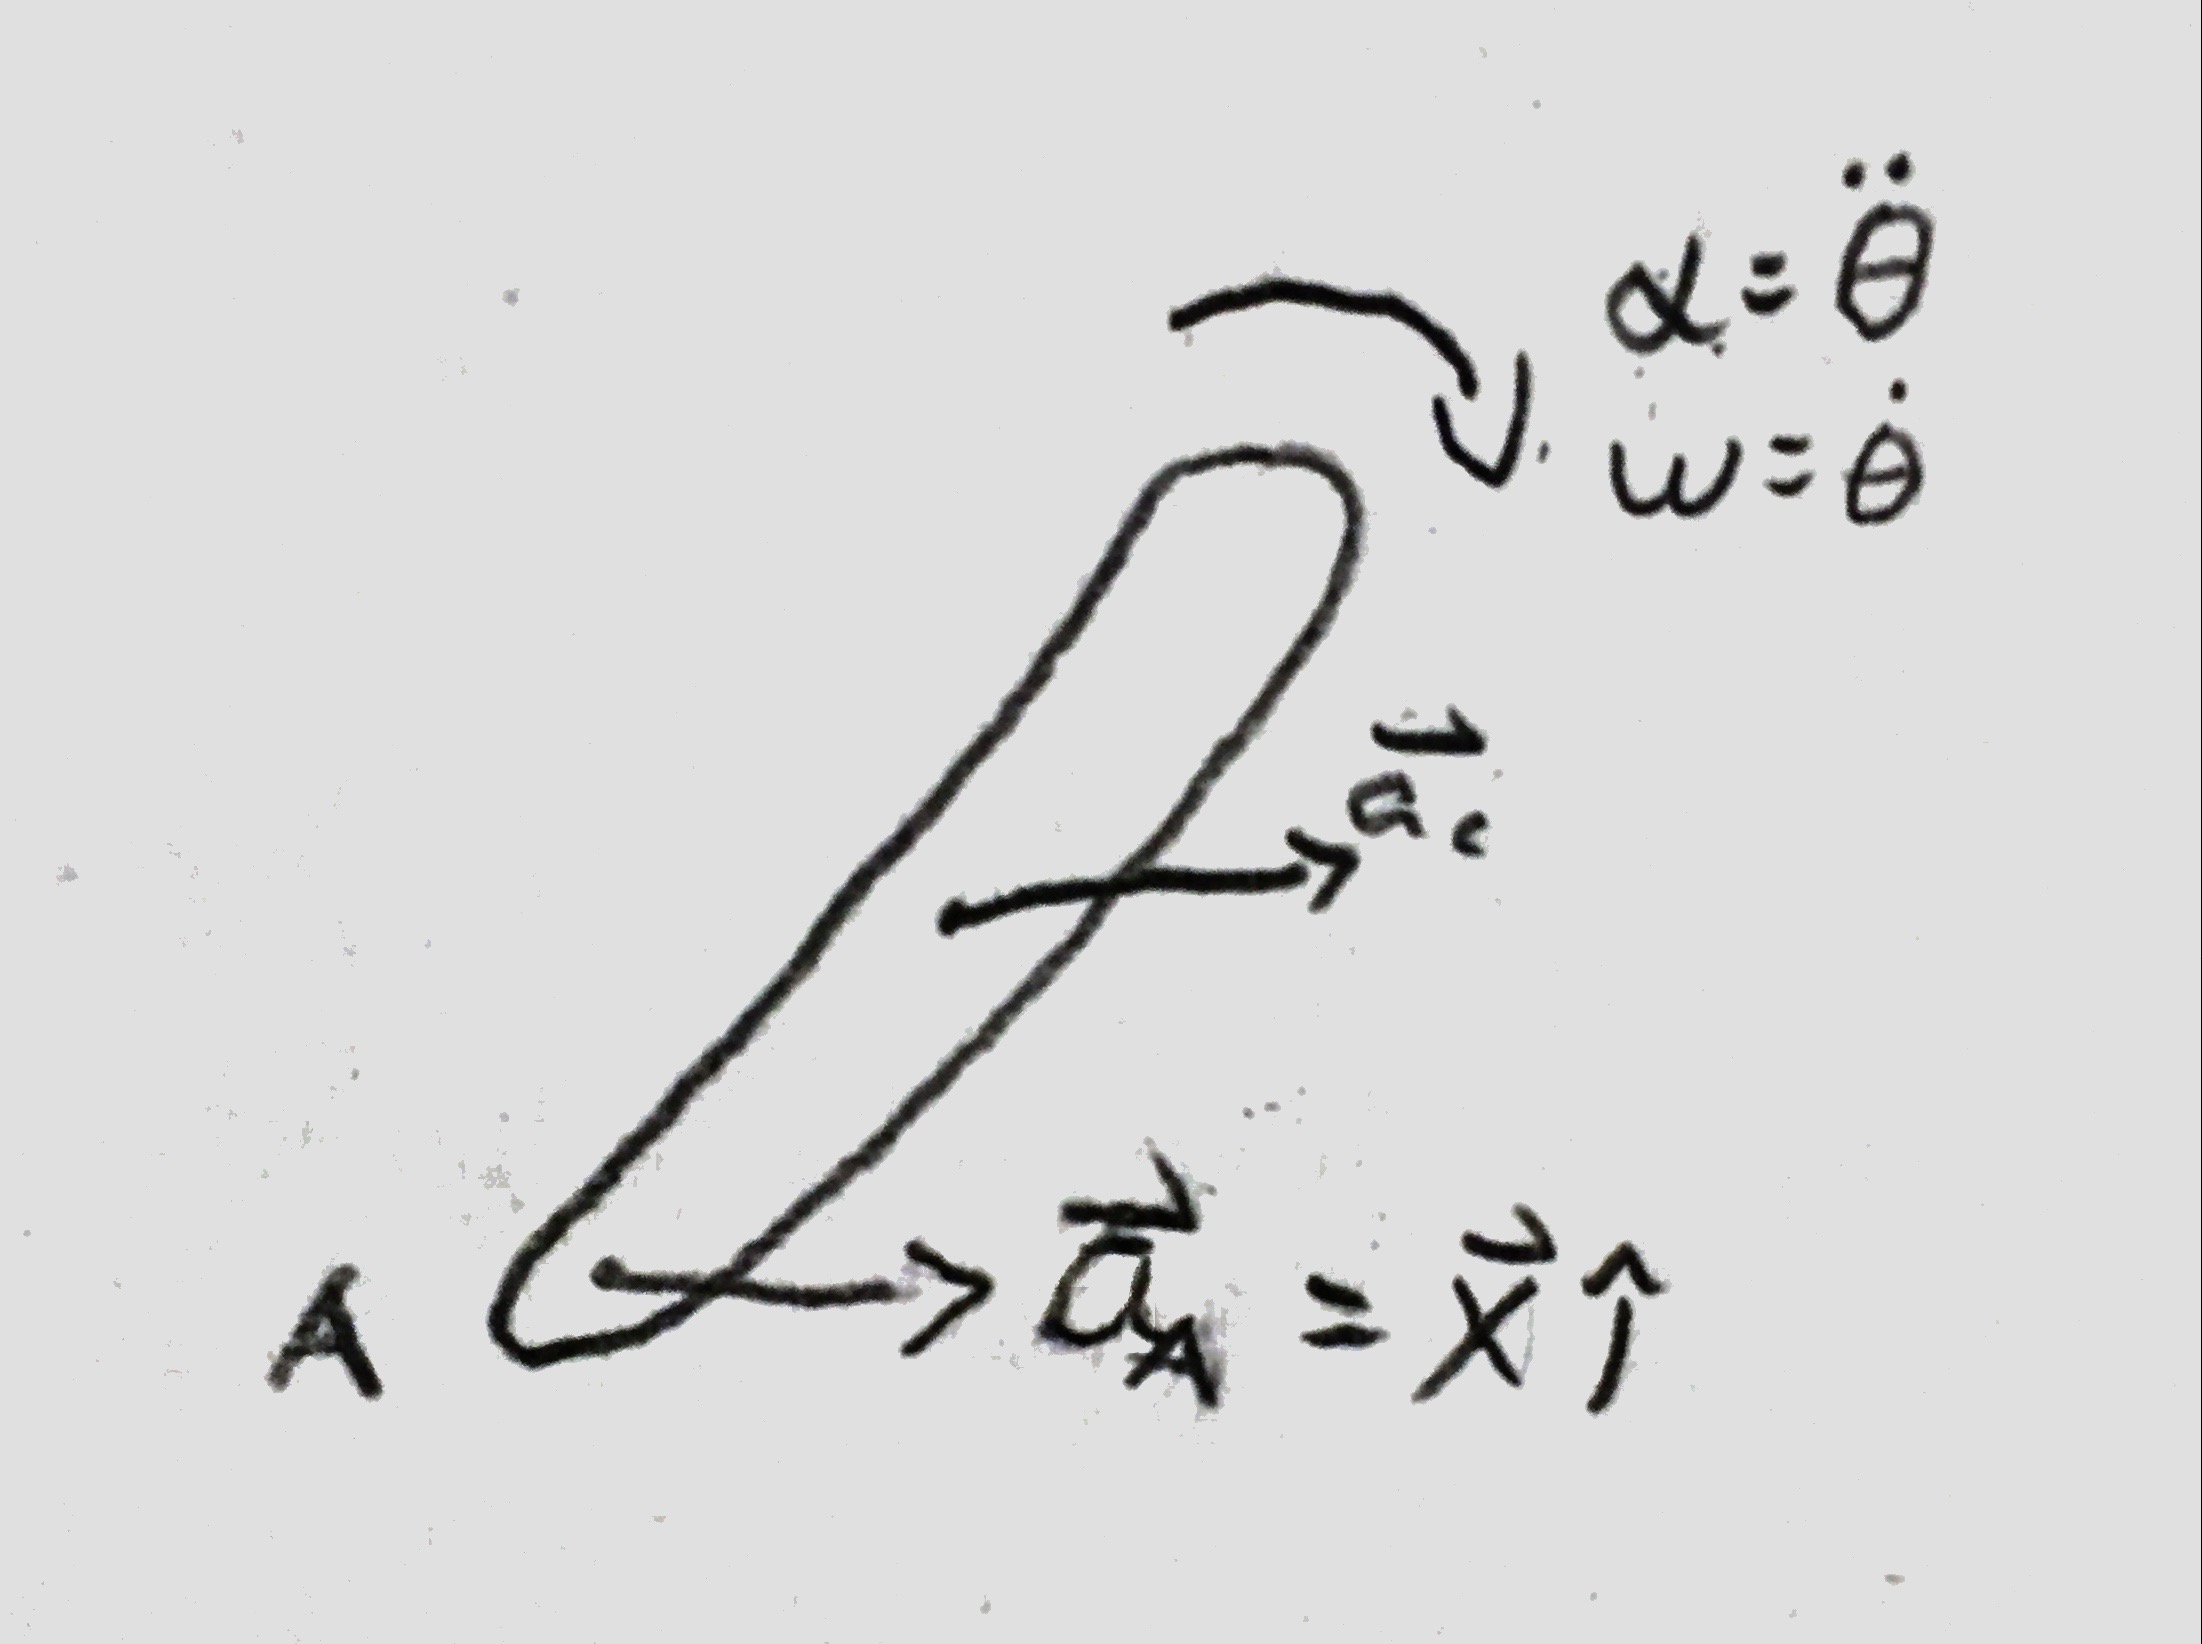 α = θ̈
ω = θ̇
a⃗c
A
a⃗A = x⃗ ↑